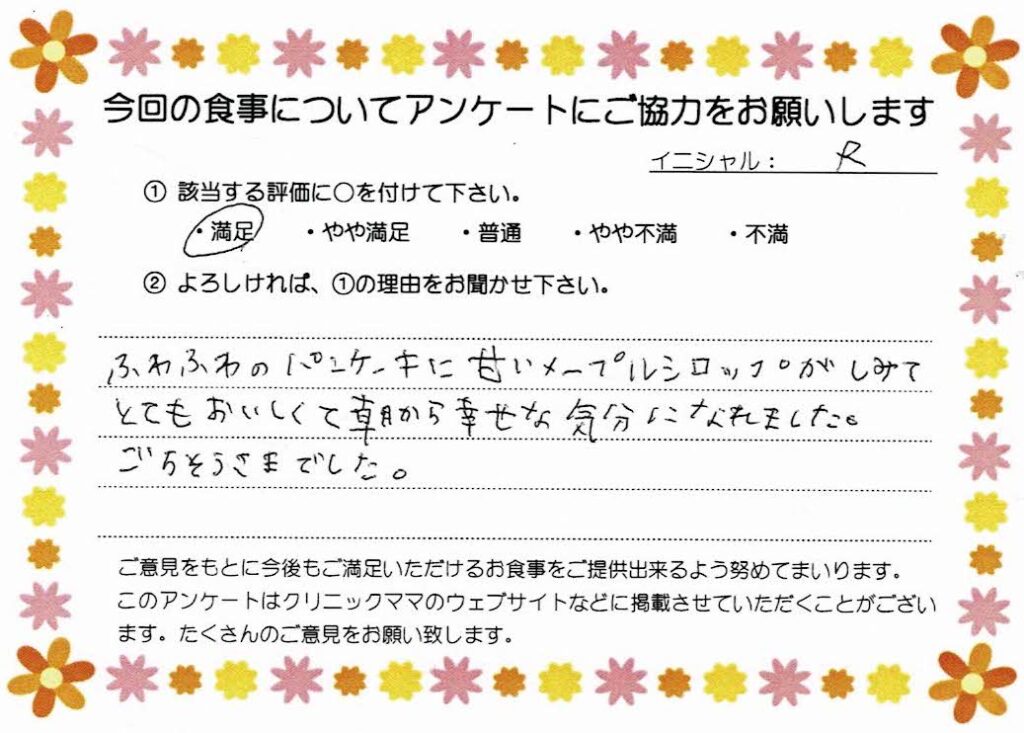 今回の食事についてアンケートにご協力をお願いします
イニシャル: R
① 該当する評価に○を付けて下さい。
・満足 ・やや満足 ・普通 ・やや不満 ・不満
② よろしければ、①の理由をお聞かせ下さい。
ふわふわのパンケーキに甘いメープルシロップがしみて
とてもおいしくて朝から幸せな気分になれました。
ごちそうさまでした。
ご意見をもとに今後もご満足いただけるお食事をご提供出来るよう努めてまいります。
このアンケートはクリニックママのウェブサイトなどに掲載させていただくことがござい
ます。たくさんのご意見をお願い致します。